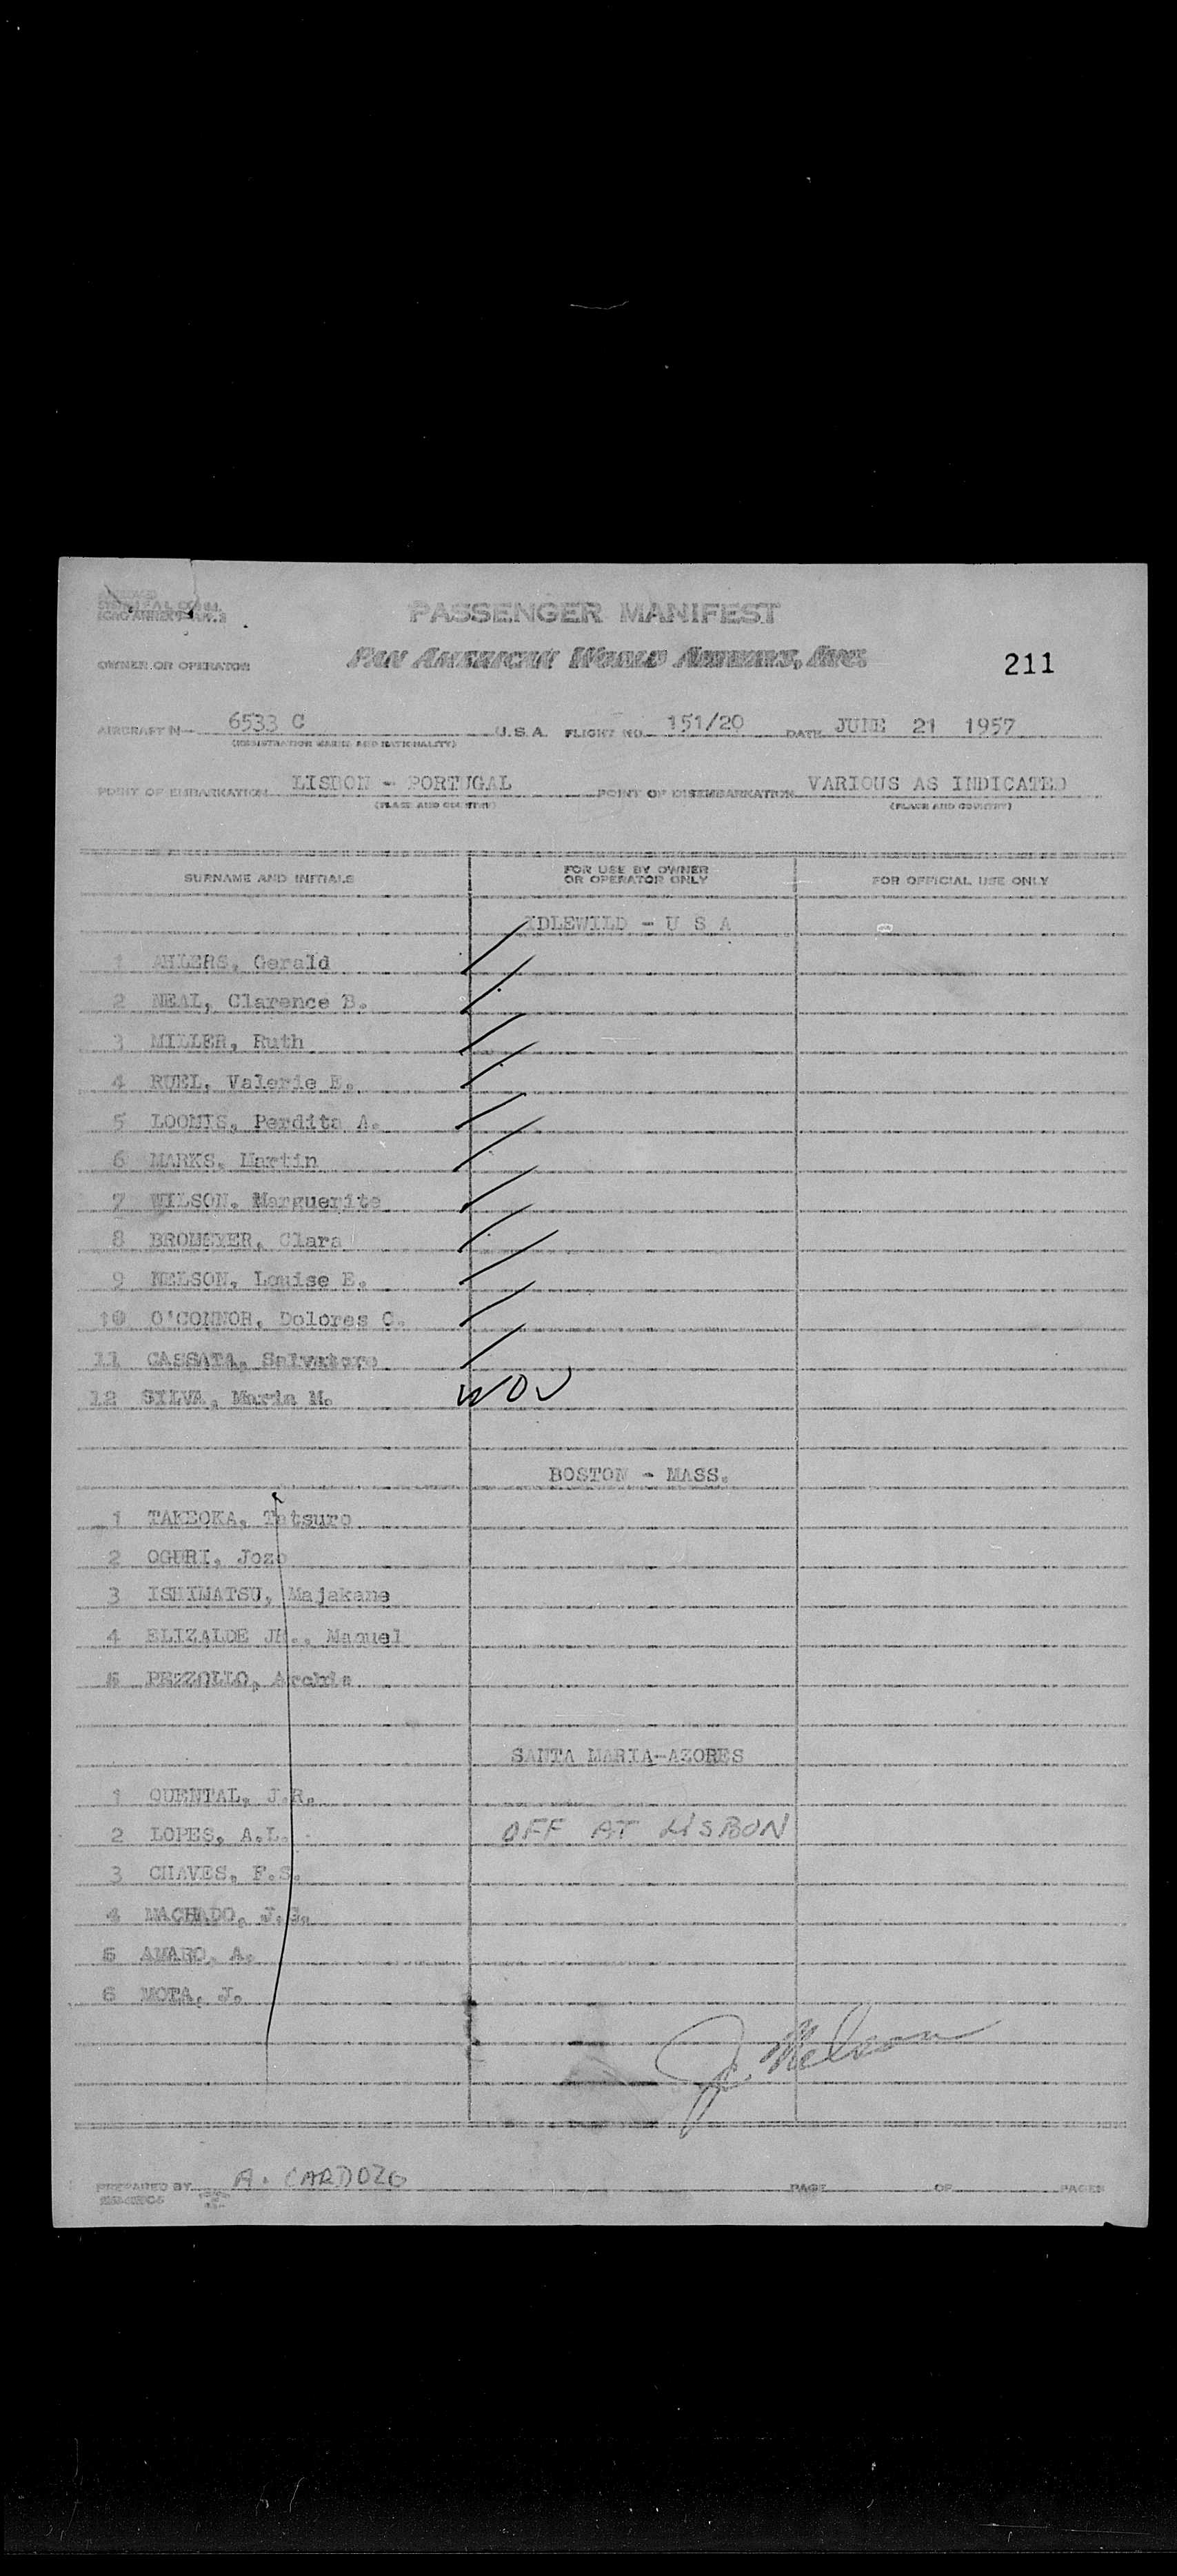 PASSENGER MANIFEST
OWNER OR OPERATOR PAN AMERICAN WORLD AIRWAYS, INC. 211
AIRCRAFT N- 6533 C U.S.A. FLIGHT NO. 151/20 DATE JUNE 21 1957
(REGISTRATION MARKS AND NATIONALITY)
POINT OF EMBARKATION LISBON - PORTUGAL POINT OF DISEMBARKATION VARIOUS AS INDICATED
(PLACE AND COUNTRY) (PLACE AND COUNTRY)
SURNAME AND INITIALS FOR USE BY OWNER OR OPERATOR ONLY FOR OFFICIAL USE ONLY
IDLEWILD - U S A
1 AHLERS, Gerald
2 NEAL, Clarence B.
3 MILLER, Ruth
4 RUEL, Valerie E.
5 LOOMIS, Perdita A.
6 MARKS, Martin
7 WILSON, Marguerite
8 BROMEYER, Clara
9 NELSON, Louise E.
10 O'CONNOR, Dolores C.
11 CASSATA, Salvatore
12 SILVA, Maria M.
BOSTON - MASS.
1 TAKEOKA, Tatsuro
2 OGURI, Jozo
3 ISHIMATSU, Majakane
4 ELIZALDE JR., Manuel
5 PEZZOLLO, Archie
SANTA MARIA-AZORES
1 QUENTAL, J.R.
2 LOPES, A.L. OFF AT LISBON
3 CHAVES, F.S.
4 MACHADO, J.G.
5 AMARO, A.
6 MOTA, J.
J. Nelson
PREPARED BY A. CARDOZO PAGE OF PAGES